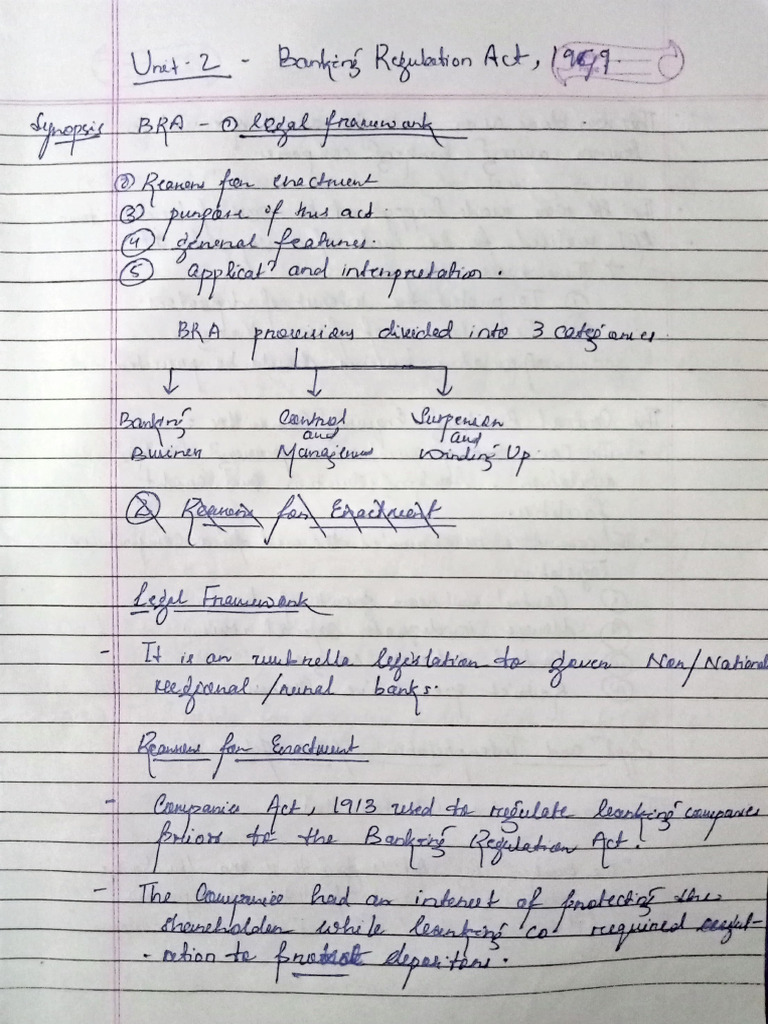 Unit-2 - Banking Regulation Act, 1949.
Synopsis BRA - ① Legal framework
② Reasons for enactment
③ purpose of this act.
④ general features.
⑤ applicatⁿ and interpretation.
BRA provisions divided into 3 categories.
Banking Control Suspension
and and
Business Management Winding Up
② Reasons for Enactment
Legal Framework
- It is an umbrella legislation to govern Non/National
regional/rural banks.
Reasons for Enactment
- Companies Act, 1913 used to regulate banking companies
priors to the Banking Regulation Act.
- The Companies had an interest of protecting the
shareholders while banking co required regul-
-ation to protect depositors.